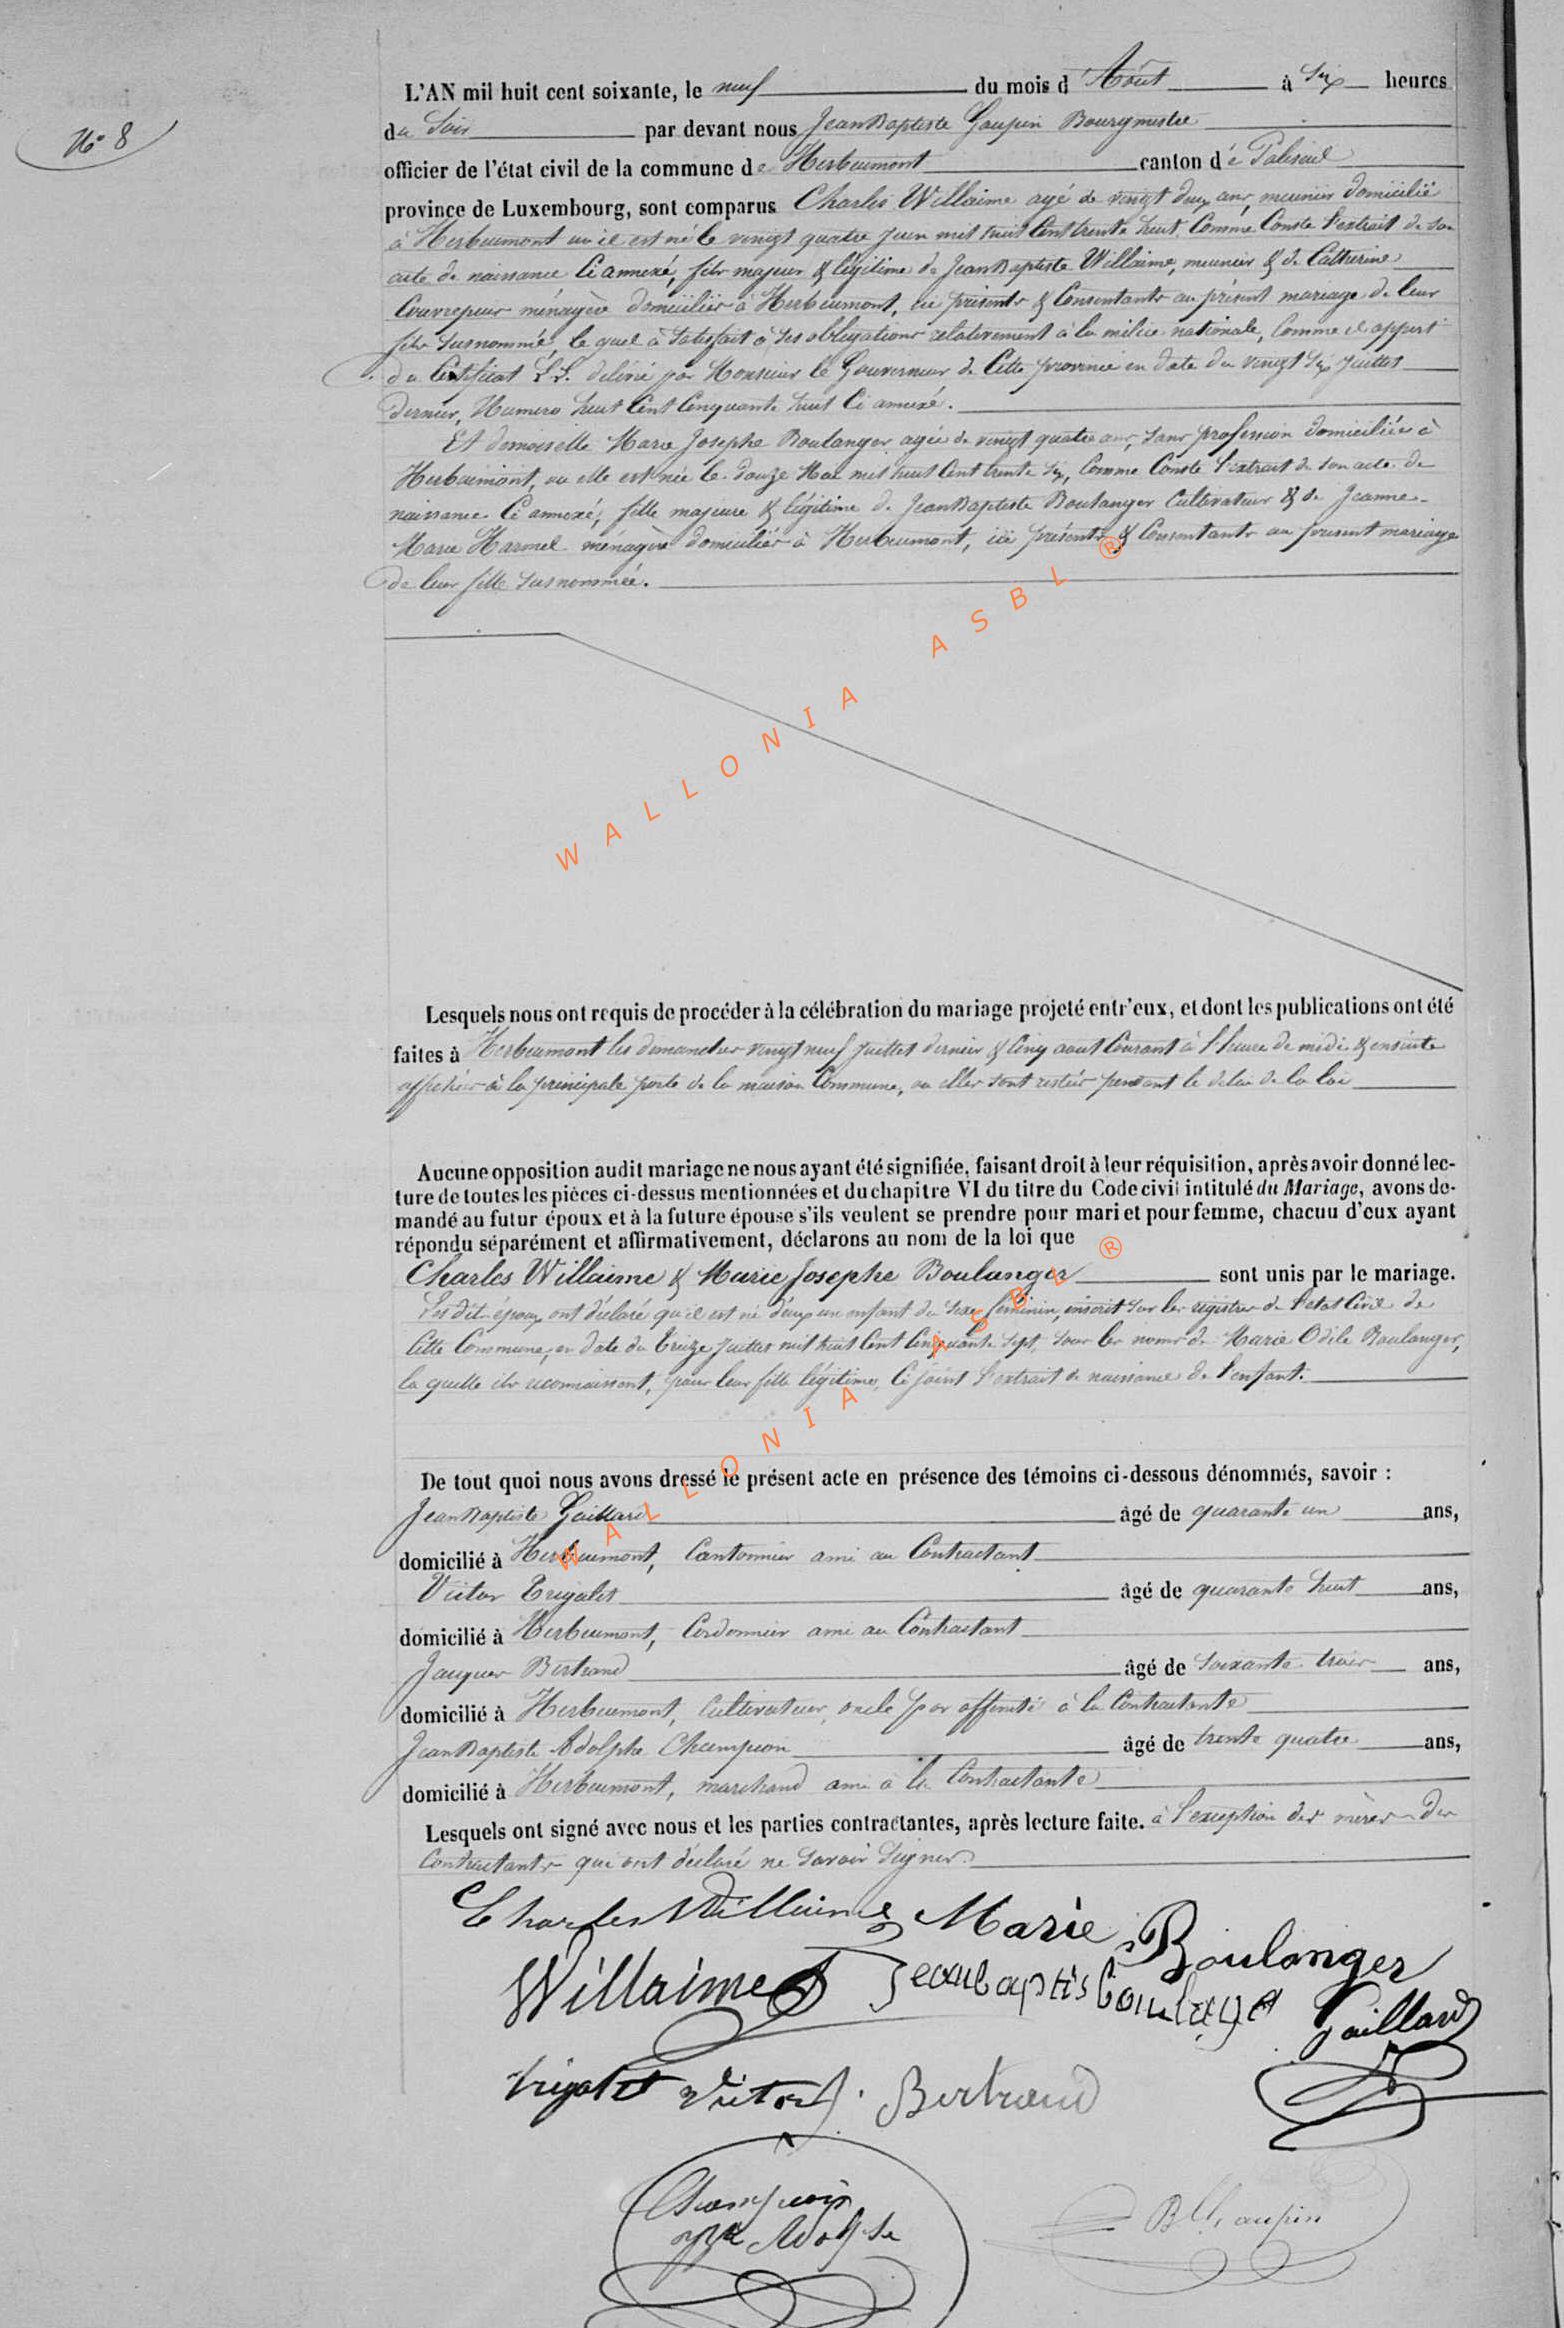 N° 8
L'AN mil huit cent soixante, le neuf du mois d'Août à six heures
du soir par devant nous Jean Baptiste Gaupin Bourgmestre
officier de l'état civil de la commune de Herbeumont canton de Paliseul
province de Luxembourg, sont comparus Charles Willaime agé de vingt deux ans, meunier domicilié
à Herbeumont ou il est né le vingt quatre Juin mil huit Cent trente huit, Comme Conste l'extrait de son
acte de naissance Ci annexé, fils majeur & légitime de Jean Baptiste Willaime, meunier & de Catherine
Couvreur ménagère domiciliés à Herbeumont, ici présents & Consentants au présent mariage de leur
fils susnommé, le quel à satisfait à ses obligations relativement à la milice nationale, Comme il appert
du Certificat L.L. délivré par Monsieur le Gouverneur de Cette province en date du vingt six Juillet
dernier, Numero huit Cent Cinquante huit Ci annexé.
Et demoiselle Marie Josephe Boulanger agée de vingt quatre ans, sans profession domiciliée à
Herbeumont, ou elle est née le douze Mai mil huit Cent trente six, Comme Conste l'extrait de son acte de
naissance Ci annexé, fille majeure & légitime de Jean Baptiste Boulanger Cultivateur & de Jeanne
Marie Harmel ménagère domiciliés à Herbeumont, ici présents & Consentants au présent mariage
de leur fille susnommée.
WALLONIA ASBL ®
Lesquels nous ont requis de procéder à la célébration du mariage projeté entr'eux, et dont les publications ont été
faites à Herbeumont les dimanches vingt neuf Juillet dernier & Cinq aout Courant à l'heure de midi & ensuite
affichées à la principale porte de la maison Commune, ou elles sont restées pendant le délai de la loi
Aucune opposition audit mariage ne nous ayant été signifiée, faisant droit à leur réquisition, après avoir donné lec-
ture de toutes les pièces ci-dessus mentionnées et du chapitre VI du titre du Code civil intitulé du Mariage, avons de-
mandé au futur époux et à la future épouse s'ils veulent se prendre pour mari et pour femme, chacuu d'eux ayant
répondu séparément et affirmativement, déclarons au nom de la loi que
Charles Willaime & Marie Josephe Boulanger sont unis par le mariage.
Les dits époux ont déclaré qu'il est né d'eux un enfant du sexe féminin, inscrit sur les registres de l'etat Civil de
Cette Commune, en date du treize Juillet mil huit Cent Cinquante sept, sous les noms de Marie Odile Boulanger,
la quelle ils reconnaissent, pour leur fille légitime, Ci joint l'extrait de naissance de l'enfant.
WALLONIA ASBL ®
De tout quoi nous avons dressé le présent acte en présence des témoins ci-dessous dénommés, savoir :
Jean Baptiste Gaillard âgé de quarante un ans,
domicilié à Herbeumont, Cantonnier ami au Contractant
Victor Trigalet âgé de quarante huit ans,
domicilié à Herbeumont, Cordonnier ami au Contractant
Jacques Bertrand âgé de soixante trois ans,
domicilié à Herbeumont, Cultivateur, oncle par affinité à la Contractante
Jean Baptiste Adolphe Champion âgé de trente quatre ans,
domicilié à Herbeumont, marchand ami à la Contractante
Lesquels ont signé avec nous et les parties contractantes, après lecture faite. à l'exception des mères des
Contractants qui ont déclaré ne savoir signer.
Charles Willaime Marie Boulanger
Willaime Jeanbaptis boulanger Gaillard
trigalet Victor J. Bertrand
Champion Adolphe